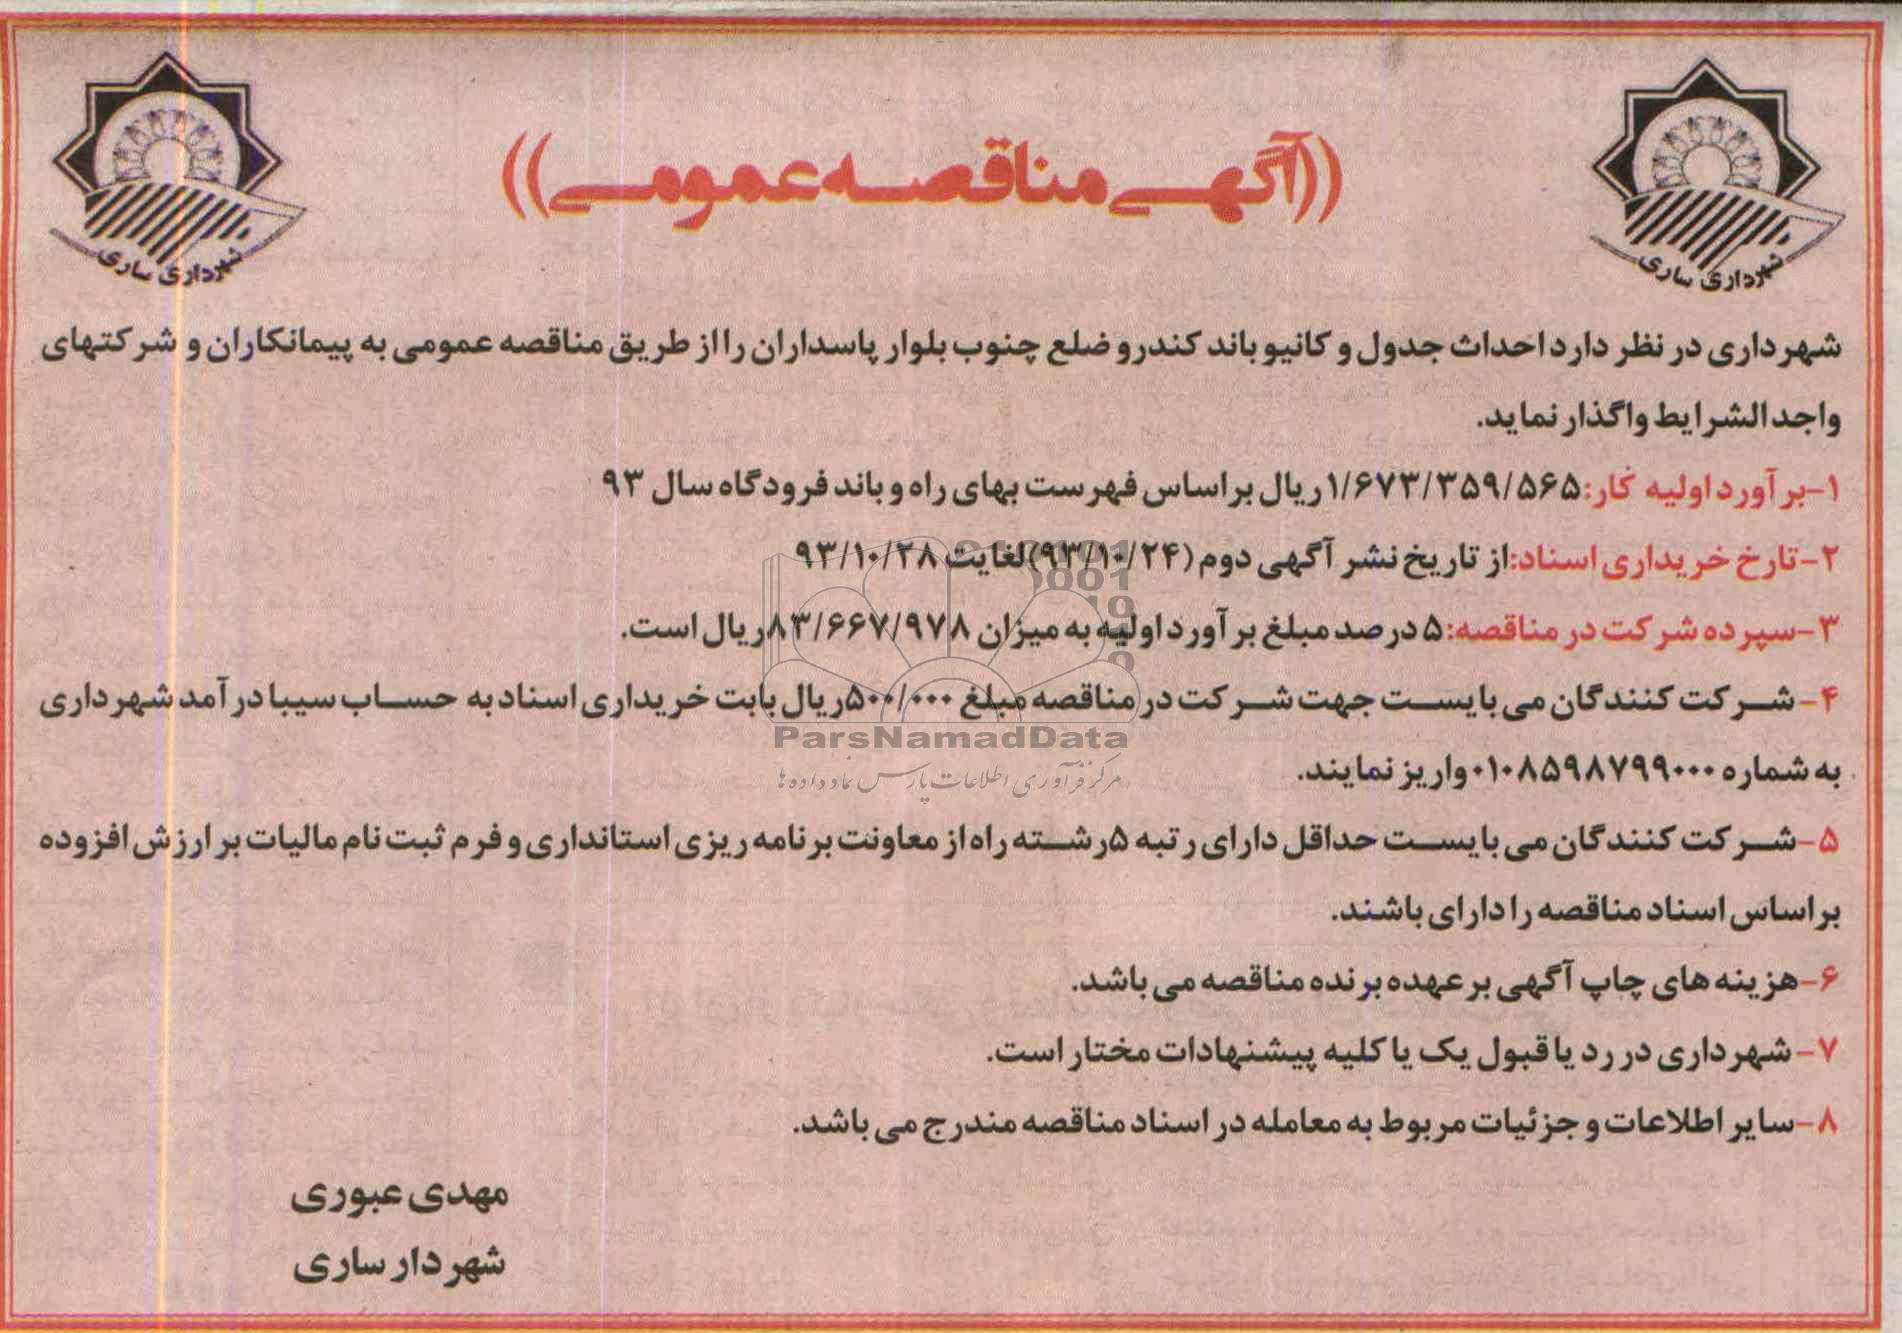 ((آگهی مناقصه عمومی))
شهرداری ساری
شهرداری ساری
شهرداری در نظر دارد احداث جدول و کانیو باند کندرو ضلع چنوب بلوار پاسداران را از طریق مناقصه عمومی به پیمانکاران و شرکتهای
واجد الشرایط واگذار نماید.
۱-برآورد اولیه کار:۱/۶۷۳/۳۵۹/۵۶۵ ریال براساس فهرست بهای راه و باند فرودگاه سال ۹۳
۲-تارخ خریداری اسناد:از تاریخ نشر آگهی دوم (۹۳/۱۰/۲۴)لغایت ۹۳/۱۰/۲۸
۳-سپرده شرکت در مناقصه:۵ درصد مبلغ برآورد اولیه به میزان ۸۳/۶۶۷/۹۷۸ریال است.
۴-شرکت کنندگان می بایست جهت شرکت در مناقصه مبلغ ۵۰۰/۰۰۰ریال بابت خریداری اسناد به حساب سیبا درآمد شهرداری
به شماره ۰۱۰۸۵۹۸۷۹۹۰۰۰واریز نمایند.
۵-شرکت کنندگان می بایست حداقل دارای رتبه ۵رشته راه از معاونت برنامه ریزی استانداری و فرم ثبت نام مالیات بر ارزش افزوده
براساس اسناد مناقصه را دارای باشند.
۶-هزینه های چاپ آگهی بر عهده برنده مناقصه می باشد.
۷-شهرداری در رد یا قبول یک یا کلیه پیشنهادات مختار است.
۸-سایر اطلاعات و جزئیات مربوط به معامله در اسناد مناقصه مندرج می باشد.
مهدی عبوری
شهردار ساری
ParsNamadData
مرکز فرآوری اطلاعات پارس نماد داده ها